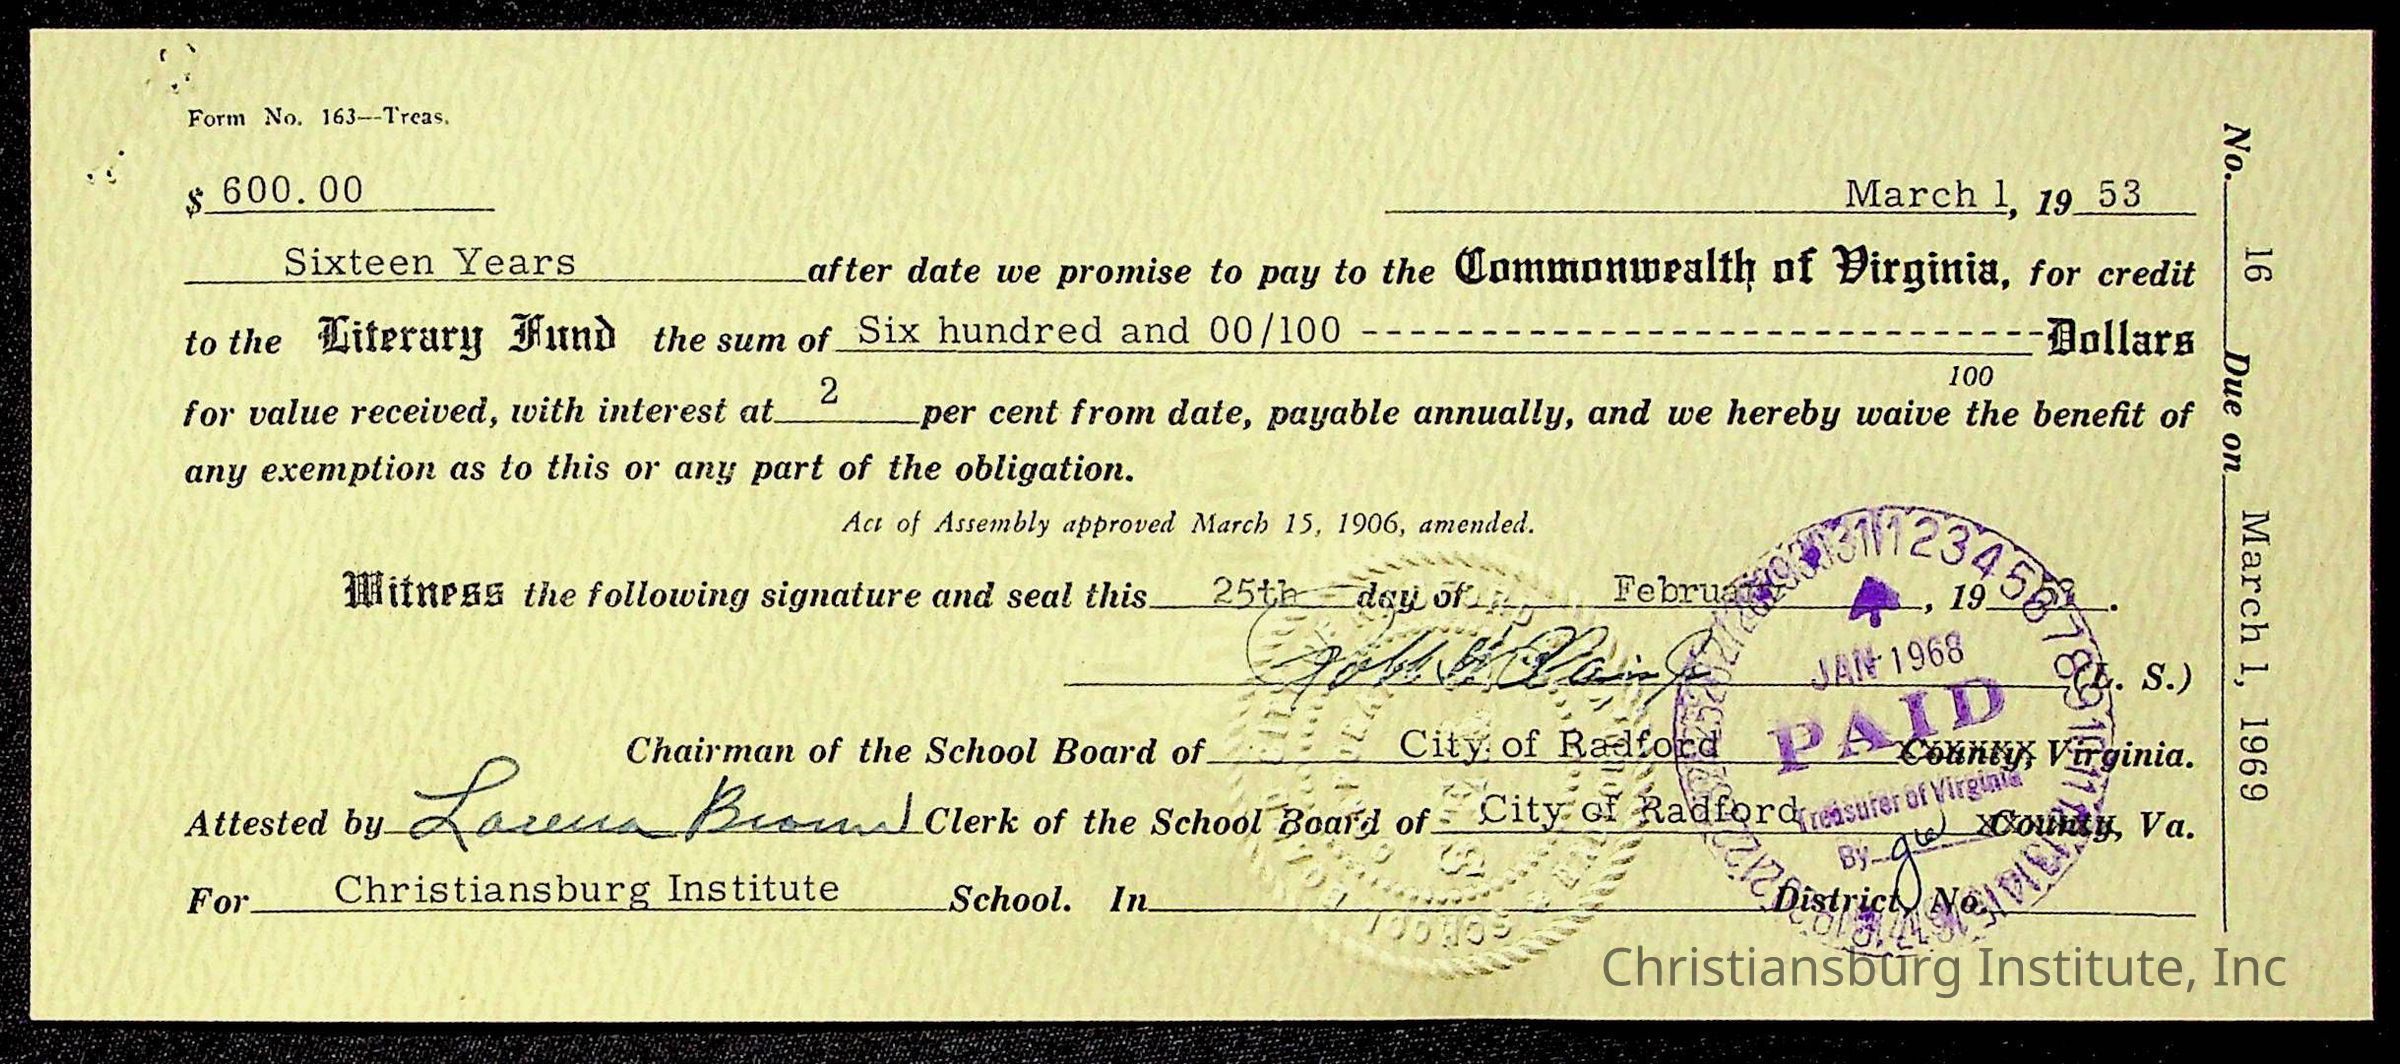 Form No. 163—Treas.
$ 600.00
March 1, 19 53
Sixteen Years after date we promise to pay to the Commonwealth of Virginia, for credit
to the Literary Fund the sum of Six hundred and 00/100 ------------------------------Dollars
100
for value received, with interest at 2 per cent from date, payable annually, and we hereby waive the benefit of
any exemption as to this or any part of the obligation.
Act of Assembly approved March 15, 1906, amended.
Witness the following signature and seal this 25th day of February, 19 .
(L. S.)
Chairman of the School Board of City of Radford County, Virginia.
Attested by Lorena Brown Clerk of the School Board of City of Radford County, Va.
For Christiansburg Institute School. In District, No.
No. 16 Due on March 1, 1969
JAN 1968
PAID
Treasurer of Virginia
By
Christiansburg Institute, Inc